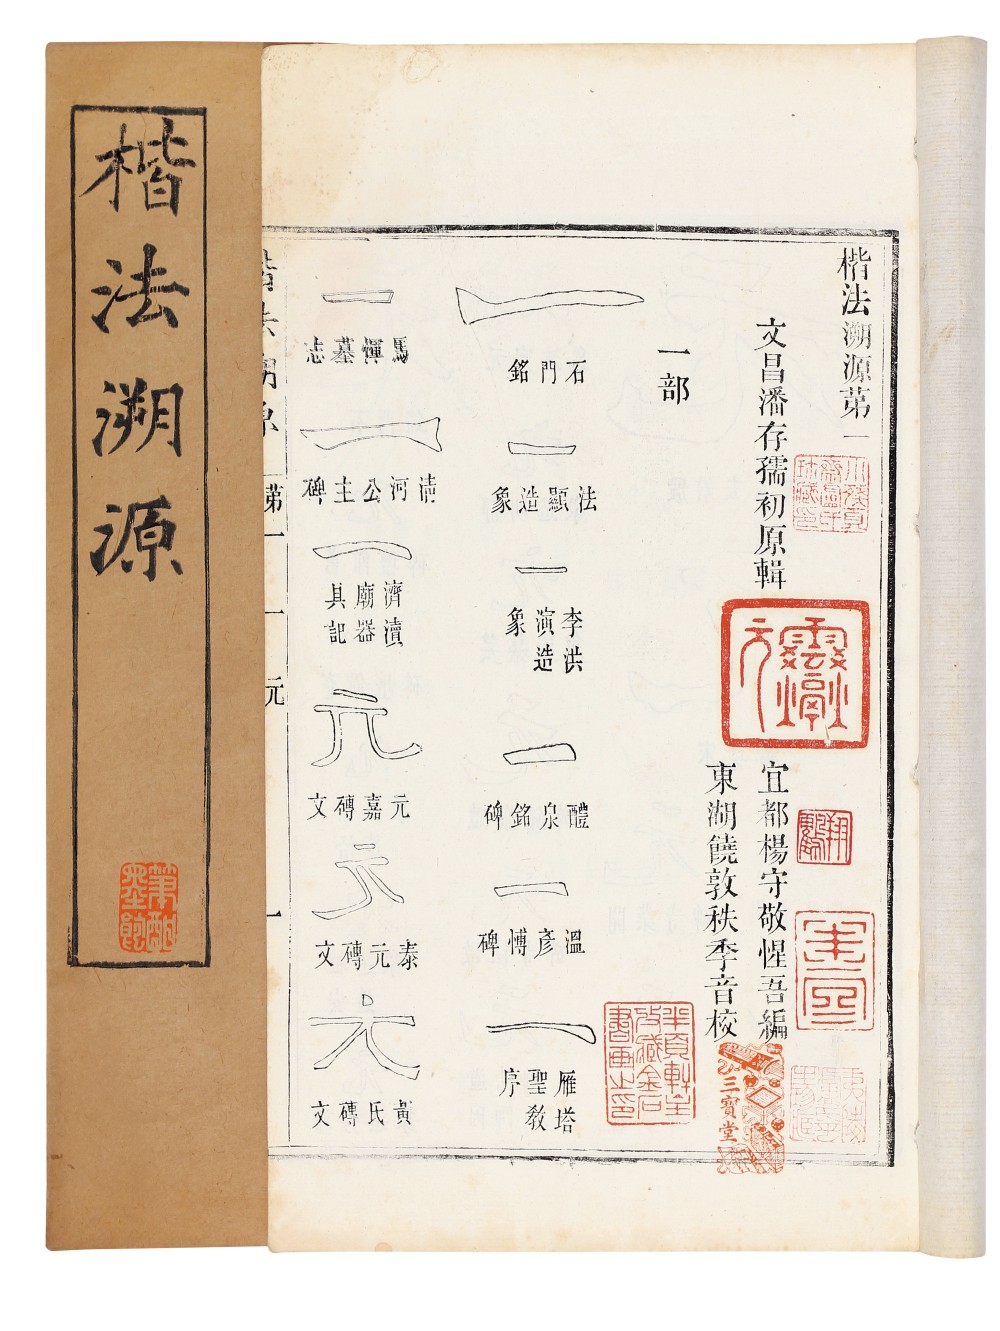 楷法溯源
楷法溯源第一
文昌潘存孺初原輯
宜都楊守敬惺吾編
東湖饒敦秩季音校
一部
石門銘
法顯造象
李洪演造象
醴泉銘碑
溫彥博碑
雁塔聖教序
馬惲墓志
清河公主碑
濟瀆廟器具記
元
元嘉磚文
元
泰元磚文
元
黃氏磚文
楷法溯源
第一
一
元
一
三寶堂
半頃軒主收藏金石書畫之印